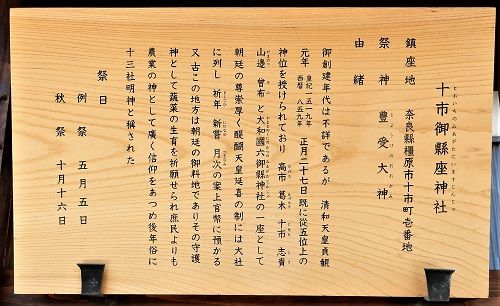 十市御縣坐神社
鎮座地 奈良縣橿原市十市町壱番地
祭神 豊受大神
由緒
御創建年代は不詳であるが 清和天皇貞観
元年 皇紀一五一九年 西暦八五九年 正月二十七日既に従五位上の
神位を授けられており 高市 葛木 十市 志貴
山邊 曽布 と大和國六御縣神社の一座として
朝廷の尊崇厚く醍醐天皇延喜の制には大社
に列し 祈年 新嘗 月次の案上官幣に預かる
又古この地方は朝廷の御料地でありその守護
神として蔬菜の生育を祈願せられ庶民よりも
農業の神として廣く信仰をあつめ後年俗に
十三社明神と稱された
祭日
例祭 五月五日
秋祭 十月十六日